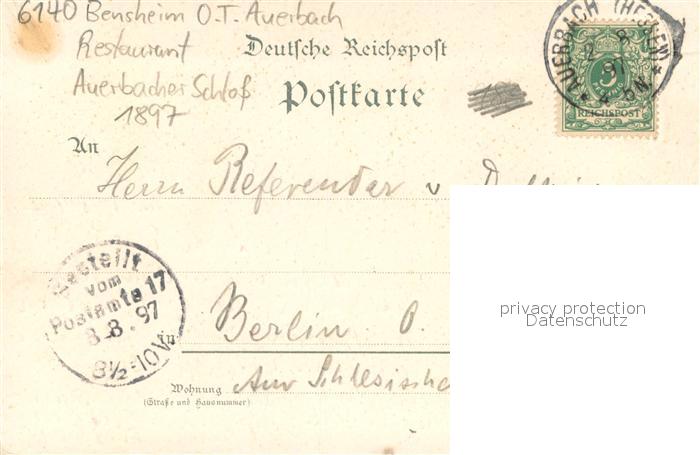 6140 Bensheim O.T. Auerbach
Restaurant
Auerbacher Schloß
1897
Deutsche Reichspost
Postkarte
AUERBACH (HESSEN)
2 8
97
REICHSPOST
An
Herrn Referendar v
privacy protection
Datenschutz
Bestellt
vom
Postamte 17
3.8.97
8½-10V.
Berlin O.
Wohnung
(Straße und Hausnummer)
Am Schlesische